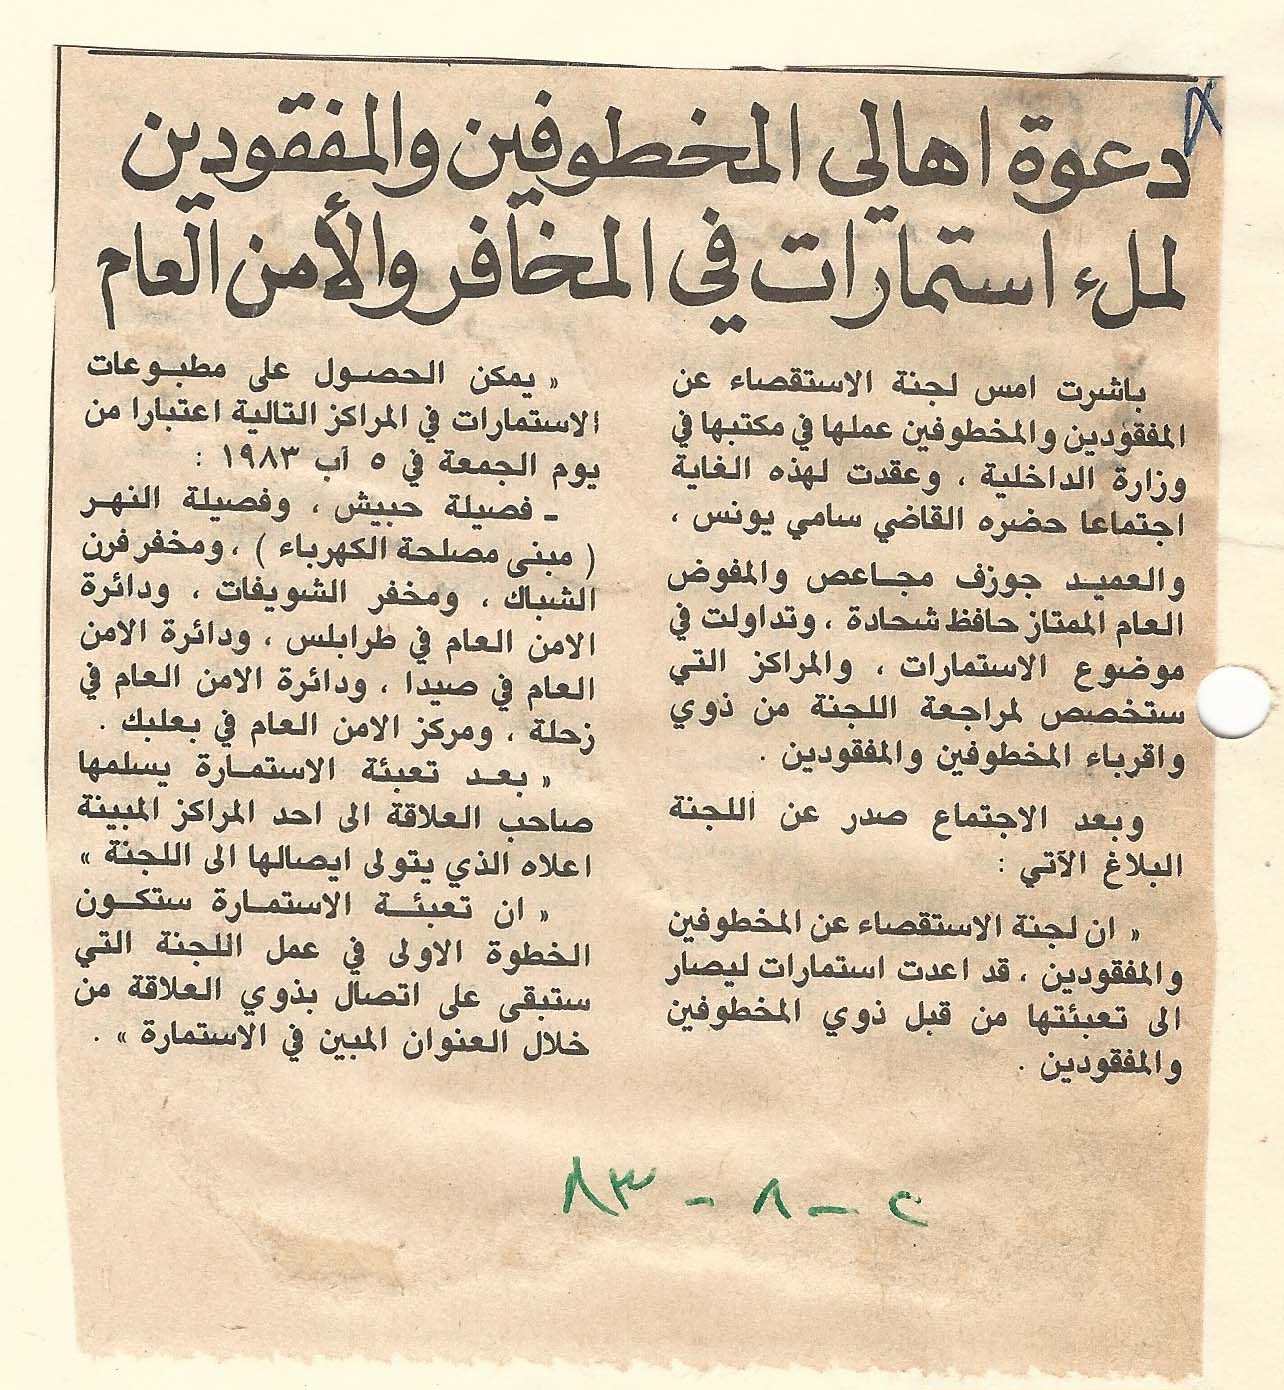 دعوة اهالي المخطوفين والمفقودين
لملء استمارات في المخافر والأمن العام
باشرت امس لجنة الاستقصاء عن
المفقودين والمخطوفين عملها في مكتبها في
وزارة الداخلية ، وعقدت لهذه الغاية
اجتماعا حضره القاضي سامي يونس ،
والعميد جوزف مجاعص والمفوض
العام الممتاز حافظ شحادة ، وتداولت في
موضوع الاستمارات ، والمراكز التي
ستخصص لمراجعة اللجنة من ذوي
واقرباء المخطوفين والمفقودين .
وبعد الاجتماع صدر عن اللجنة
البلاغ الآتي :
« ان لجنة الاستقصاء عن المخطوفين
والمفقودين ، قد اعدت استمارات ليصار
الى تعبئتها من قبل ذوي المخطوفين
والمفقودين .
« يمكن الحصول على مطبوعات
الاستمارات في المراكز التالية اعتبارا من
يوم الجمعة في ٥ آب ١٩٨٣ :
ـ فصيلة حبيش ، وفصيلة النهر
( مبنى مصلحة الكهرباء ) ، ومخفر فرن
الشباك ، ومخفر الشويفات ، ودائرة
الامن العام في طرابلس ، ودائرة الامن
العام في صيدا ، ودائرة الامن العام في
زحلة ، ومركز الامن العام في بعلبك .
« بعد تعبئة الاستمارة يسلمها
صاحب العلاقة الى احد المراكز المبينة
اعلاه الذي يتولى ايصالها الى اللجنة »
« ان تعبئة الاستمارة ستكون
الخطوة الاولى في عمل اللجنة التي
ستبقى على اتصال بذوي العلاقة من
خلال العنوان المبين في الاستمارة » .
٨ - ٨٣